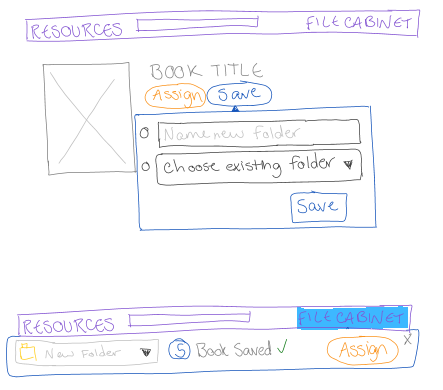 RESOURCES FILE CABINET
BOOK TITLE
Assign Save
Name new folder
Choose existing folder
Save
RESOURCES FILE CABINET
New Folder 5 Book Saved ✓ Assign X